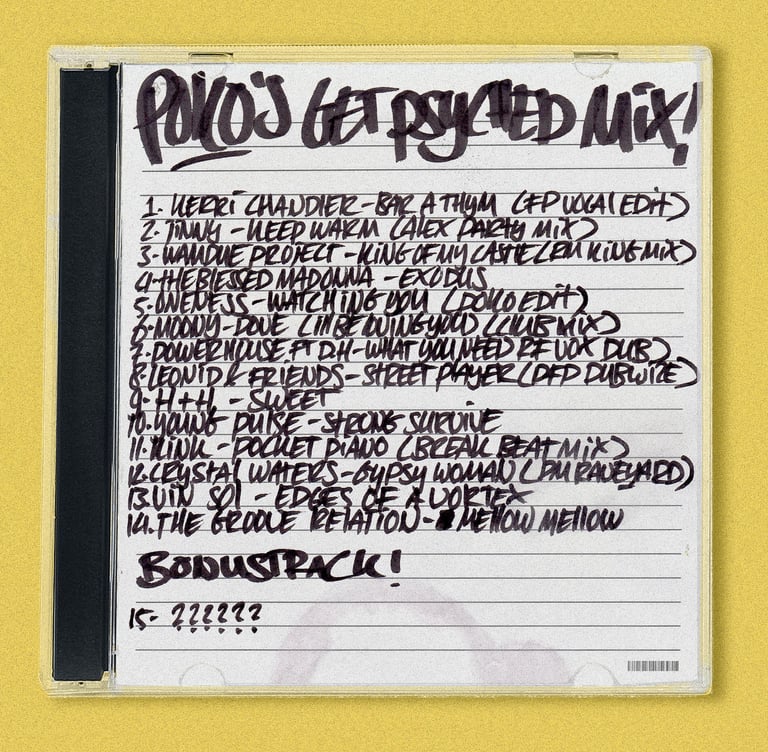 POKO'S GET PSYCHED MIX!
1. KERRI CHANDLER - BAR A THYM (FP VOCAL EDIT)
2. JINNY - KEEP WARM (ALEX PARTY MIX)
3. WAMDUE PROJECT - KING OF MY CASTLE (BM KING MIX)
4. THE BLESSED MADONNA - EXODUS
5. ONENESS - WATCHING YOU (POKO EDIT)
6. MOONY - DOVE (I'LL BE LOVING YOU) (CLUB MIX)
7. POWERHOUSE FT D.H - WHAT YOU NEED RF VOX DUB)
8. LEONID & FRIENDS - STREET PLAYER (DFP DUBWIZE)
9. H+H - SWEET
10. YOUNG PULSE - STRONG SURVIVE
11. KINK - POCKET PIANO (BREAK BEAT MIX)
12. CRYSTAL WATERS - GYPSY WOMAN (DM RAVEYARD)
13. VIN SOL - EDGES OF A VORTEX
14. THE GROOVE RELATION - MELLOW MELLOW
BONUSTRACK!
15- ??????